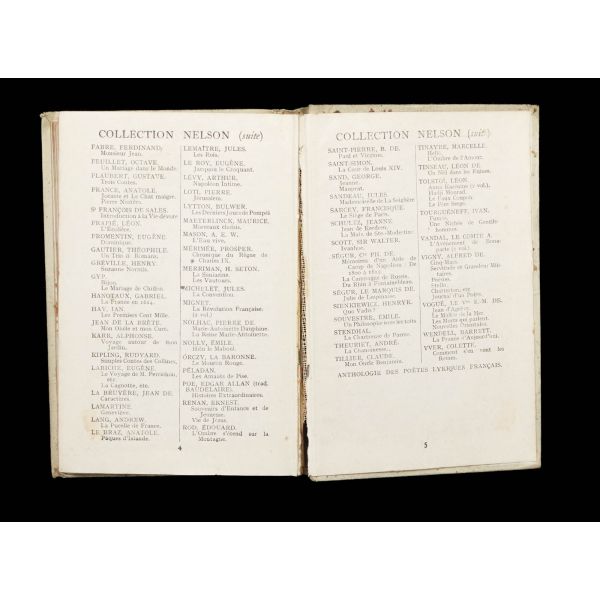 COLLECTION NELSON (suite)
FABRE, FERDINAND.
Monsieur Jean.
FEUILLET, OCTAVE.
Un Mariage dans le Monde.
FLAUBERT, GUSTAVE.
Trois Contes.
FRANCE, ANATOLE.
Jocaste et Le Chat maigre.
Pierre Nozière.
St FRANÇOIS DE SALES.
Introduction à la Vie dévote
FRAPIÉ, LÉON.
L'Écolière.
FROMENTIN, EUGÈNE.
Dominique.
GAUTIER, THÉOPHILE.
Un Trio de Romans.
GRÉVILLE, HENRY.
Suzanne Normis.
GYP.
Bijou.
Le Mariage de Chiffon.
HANOTAUX, GABRIEL.
La France en 1614.
HAY, IAN.
Les Premiers Cent Mille.
JEAN DE LA BRÈTE.
Mon Oncle et mon Curé.
KARR, ALPHONSE.
Voyage autour de mon
Jardin.
KIPLING, RUDYARD.
Simples Contes des Collines.
LABICHE, EUGÈNE.
Le Voyage de M. Perrichon,
etc.
La Cagnotte, etc.
LA BRUYÈRE, JEAN DE.
Caractères.
LAMARTINE.
Geneviève.
LANG, ANDREW.
La Pucelle de France.
LE BRAZ, ANATOLE.
Pâques d'Islande.
LEMAÎTRE, JULES.
Les Rois.
LE ROY, EUGÈNE.
Jacquou le Croquant.
LÉVY, ARTHUR.
Napoléon Intime.
LOTI, PIERRE.
Jérusalem.
LYTTON, BULWER.
Les Derniers Jours de Pompéi
MAETERLINCK, MAURICE.
Morceaux choisis.
MASON, A. E. W.
L'Eau vive.
MÉRIMÉE, PROSPER.
Chronique du Règne de
Charles IX.
MERRIMAN, H. SETON.
La Simiacine.
Les Vautours.
MICHELET, JULES.
La Convention.
MIGNET.
La Révolution Française.
(2 vol.)
NOLHAC, PIERRE DE.
Marie-Antoinette Dauphine.
La Reine Marie-Antoinette.
NOLLY, ÉMILE.
Hiên le Maboul.
ORCZY, LA BARONNE.
Le Mouron Rouge.
PÉLADAN.
Les Amants de Pise.
POE, EDGAR ALLAN (trad.
BAUDELAIRE).
Histoires Extraordinaires.
RENAN, ERNEST.
Souvenirs d'Enfance et de
Jeunesse.
Vie de Jésus.
ROD, ÉDOUARD.
L'Ombre s'étend sur la
Montagne.
4
COLLECTION NELSON (suite)
SAINT-PIERRE, B. DE.
Paul et Virginie.
SAINT-SIMON.
La Cour de Louis XIV.
SAND, GEORGE.
Jeanne.
Mauprat.
SANDEAU, JULES.
Mademoiselle de La Seiglière
SARCEY, FRANCISQUE.
Le Siège de Paris.
SCHULTZ, JEANNE.
Jean de Kerdren.
La Main de Ste.-Modestine.
SCOTT, SIR WALTER.
Ivanhoe.
SÉGUR, Cte PH. DE.
Mémoires d'un Aide de
Camp de Napoléon : De
1800 à 1812.
La Campagne de Russie.
Du Rhin à Fontainebleau.
SÉGUR, LE MARQUIS DE.
Julie de Lespinasse.
SIENKIEWICZ, HENRYK.
Quo Vadis?
SOUVESTRE, ÉMILE.
Un Philosophe sous les toits.
STENDHAL.
La Chartreuse de Parme.
THEURIET, ANDRÉ.
La Chanoinesse.
TILLIER, CLAUDE.
Mon Oncle Benjamin.
TINAYRE, MARCELLE.
Hellé.
L'Ombre de l'Amour.
TINSEAU, LÉON DE.
Un Nid dans les Ruines.
TOLSTOÏ, LÉON.
Anna Karénine (2 vol.).
Hadji Mourad.
Le Faux Coupon.
Le Père Serge.
TOURGUÉNEFF, IVAN.
Fumée.
Une Nichée de Gentils-
hommes.
VANDAL, LE COMTE A.
L'Avènement de Bona-
parte (2 vol.).
VIGNY, ALFRED DE.
Cinq-Mars.
Servitude et Grandeur Mili-
taires.
Poésies.
Stello.
Chatterton, etc.
Journal d'un Poète.
VOGÜÉ, LE Vte E.-M. DE.
Jean d'Agrève.
Le Maître de la Mer.
Les Morts qui parlent.
Nouvelles Orientales.
WENDELL, BARRETT.
La France d'Aujourd'hui.
YVER, COLETTE.
Comment s'en vont les
Reines.
ANTHOLOGIE DES POÈTES LYRIQUES FRANÇAIS.
5